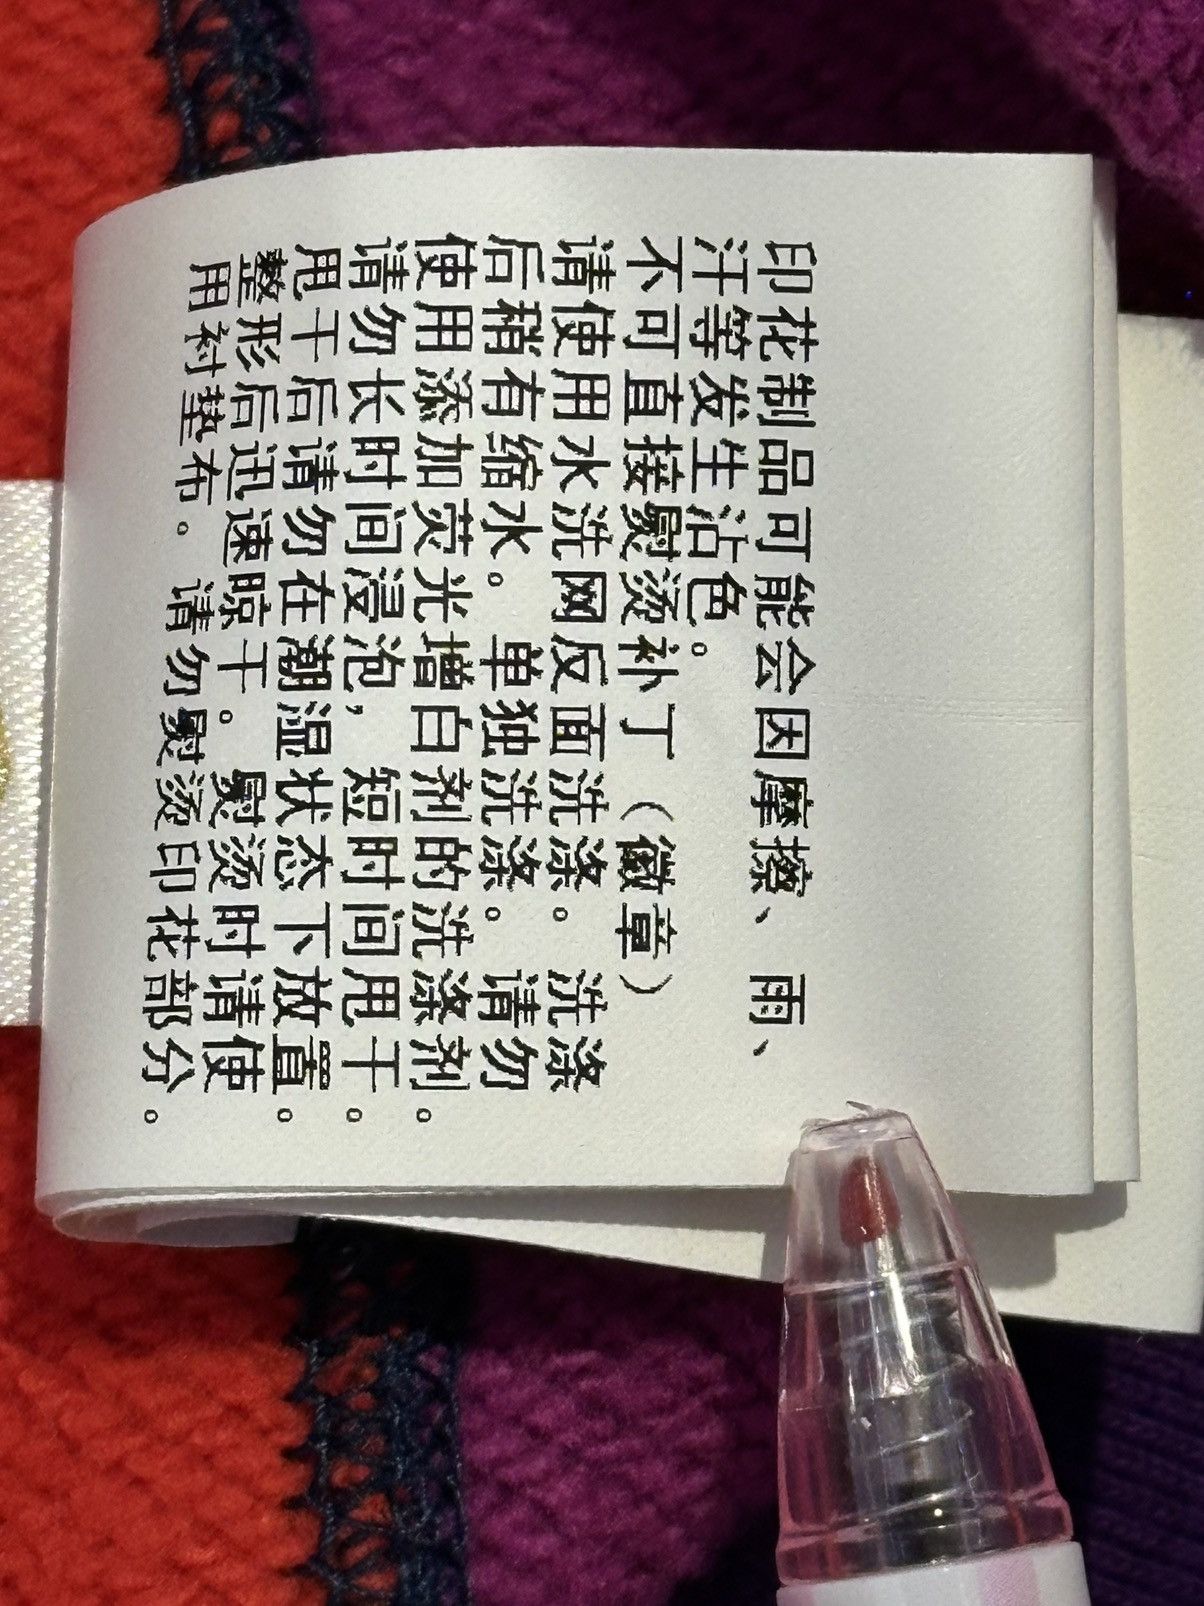 印花制品可能会因摩擦、雨、
汗等发生沾色。
不可直接熨烫补丁（徽章）
请使用水洗网反面洗涤。洗涤
后稍有缩水。单独洗涤。请勿
使用添加荧光增白剂的洗涤剂。
请勿长时间浸泡，短时间甩干。
甩干后请勿在潮湿状态下放置。
整形后迅速晾干。熨烫时请使
用衬垫布。请勿熨烫印花部分。